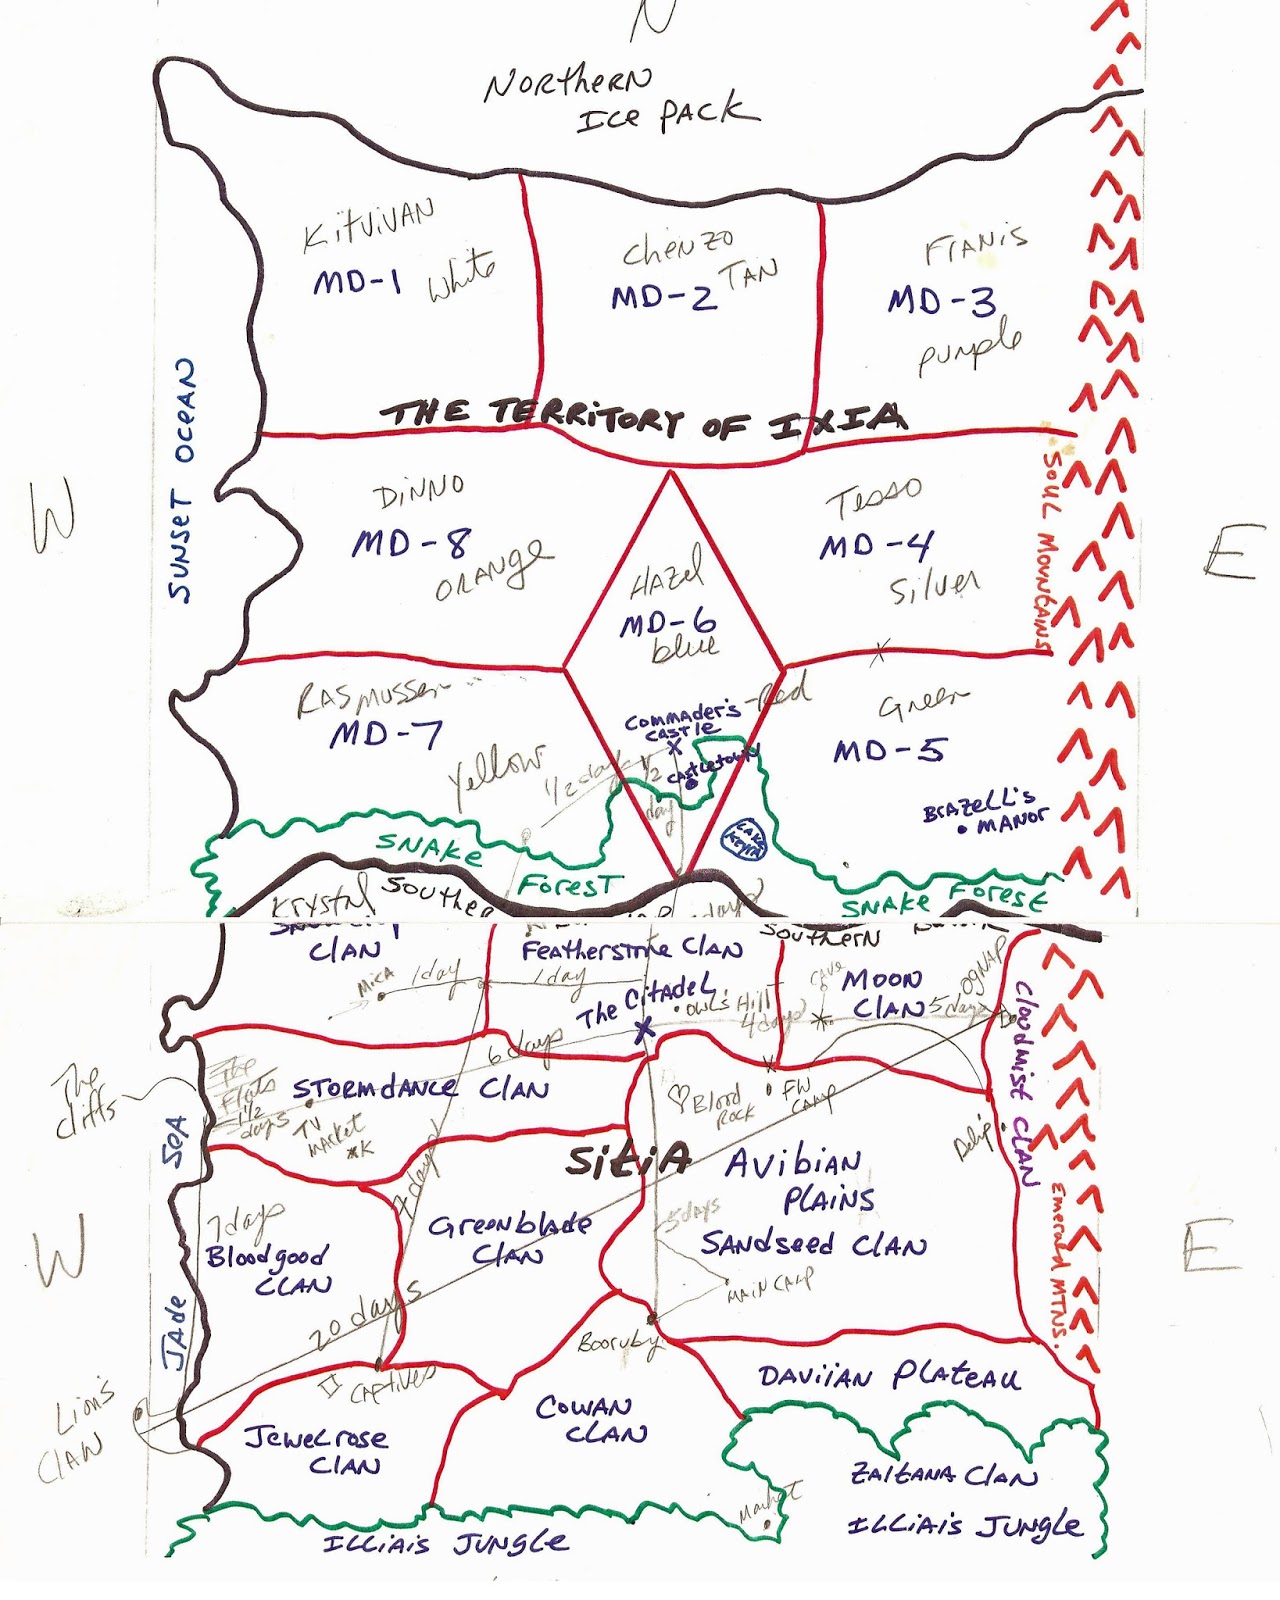 N
NORTHERN
ICE PACK
KITVIVAN
MD-1 White
CHENZO
MD-2 TAN
FIANIS
MD-3
purple
THE TERRITORY OF IXIA
SUNSET OCEAN
W
E
SOUL MOUNTAINS
DINNO
MD-8
ORANGE
HAZEL
MD-6
blue
TESSO
MD-4
Silver
RASMUSSEN
MD-7
Yellow
COMMADER'S
CASTLE
X
CASTLETOWN
-Red
Green
MD-5
BRAZELL'S
MANOR
1/2 day
1/2
day
LAKE
KEYRA
SNAKE
FOREST
SNAKE FOREST
KRYSTAL
SOUTHER
days
CLAN
FEATHERSTONE CLAN
SOUTHERN
MICA
1 day
1 day
THE CITADEL
OWL'S HILL
CAVE
MOON
CLAN
4 days
5 days
OGNAP
CLOUDMIST CLAN
6 days
The
Cliffs
The
Flats
1 1/2
days
STORMDANCE CLAN
TV
MARKET
*K
Blood
Rock
FW
CAMP
Delip
JADE SEA
SITIA
AVIBIAN
PLAINS
SANDSEED CLAN
7 days
5 days
MAIN CAMP
EMERALD MTNS.
W
E
7 days
Bloodgood
CLAN
Greenblade
CLAN
20 days
BOORUBY
II CAPTIVES
Lion's
CLAW
DAVIIAN PLATEAU
COWAN
CLAN
Jewelrose
CLAN
ZALTANA CLAN
ILLIAIS JUNGLE
Market
ILLIAIS JUNGLE